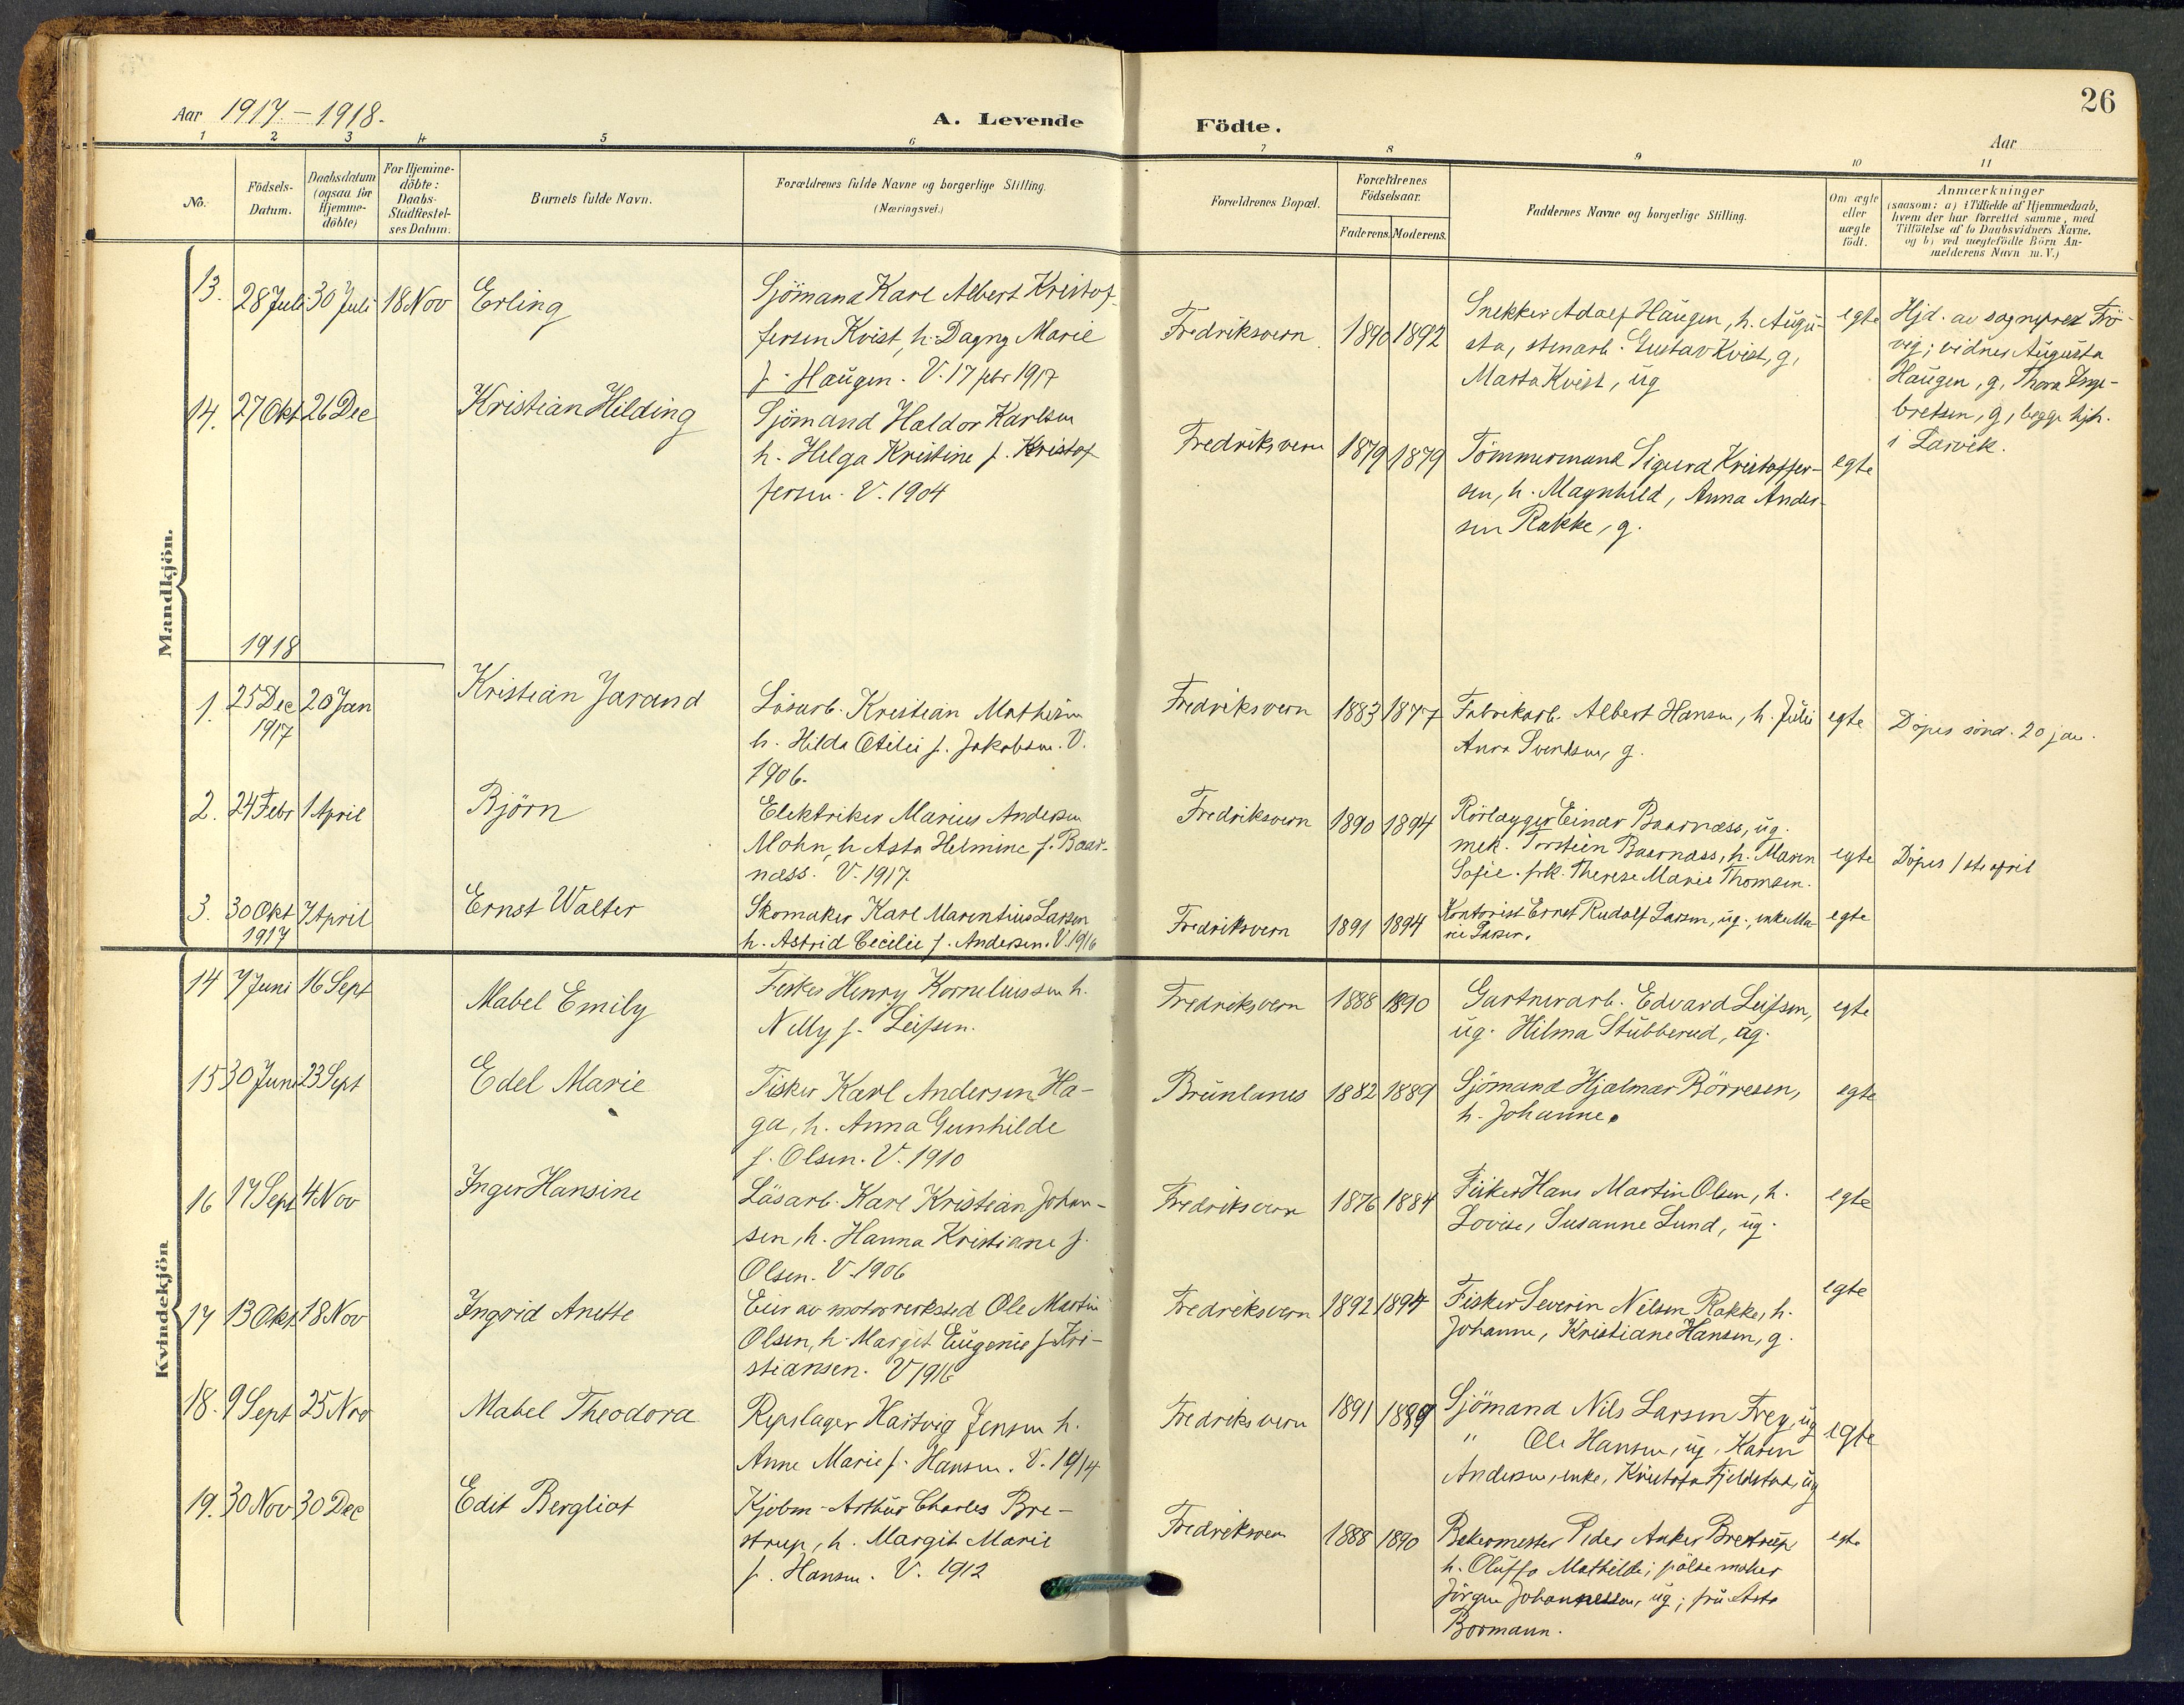 26
Aar 1917.-1918.
A. Levende Födte.
Aar
1 2 3 4 5 6 7 8 9 10 11
No.
Födsels-Datum.
Daabsdatum (ogsaa for Hjemme-döbte)
For Hjemme-döbte: Daabs-Stadfæstel-ses Datum.
Barnets fulde Navn.
Forældrenes fulde Navne og borgerlige Stilling.
(Næringsvei.)
Forældrenes Bopæl.
Forældrenes Födselsaar.
Faderens. Moderens.
Faddernes Navne og borgerlige Stilling.
Om ægte eller uægte födt.
Anmærkninger
(saasom: a) i Tilfælde af Hjemmedaab,
hvem der har forrettet samme, med
Tilföielse af to Daabsvidners Navne.
og b) ved uægtefödte Börn An-
melderens Navn m.V.)
Mandkjön.
13. 28 Juli 30 Juli 18 Nov Erling
Sjömand Karl Albert Kristof-
fersen Kvist, h. Dagny Marie
f. Haugen. V. 17 febr 1917
Fredriksvern 1890 1892
Snekker Adolf Haugen, h. Augu-
sta, stenarb. Gustav Kvist, g,
Marta Kvist, ug
egte
Hjd. av sognepres Frö-
vig; vidner Augusta
Haugen, g, Thora Inge-
bretsen, g, begge hjh.
i Larvik.
14. 27 Okt 26 Dec Kristian Hilding
Sjömand Haldor Karlsen
h. Helga Kristine f. Kristof
fersen. V. 1904
Fredriksvern 1879 1879
Tömmermand Sigurd Kristoffer-
sen, h. Magnhild, Anna Ander-
sen Rakke, g.
egte
1918
1. 25 Dec 1917 20 Jan Kristian Jarand
Lösarb. Kristian Mathisen
h. Hilda Otilie f. Jakobsen. V.
1906.
Fredriksvern 1883 1877
Fabrikarb. Albert Hansen, h. Julie
Anna Svendsen, g.
egte
Döpes sönd. 20 jan.
2. 24 Febr 1 April Björn
Elektriker Marius Andersen
Mohn, h Asta Helmine f. Baar-
næss. V. 1917.
Fredriksvern 1890 1894
Rörlægger Einar Baarnæss, ug.
mek. Torstein Baarnæss, h. Maren
Sofie. frk. Therese Marie Thomsen.
egte
Döpes 1ste april
3. 30 Okt 1917 7 April Ernst Walter
Skomaker Karl Marentius Larsen
h. Astrid Cecilie f. Andersen. V. 1916
Fredriksvern 1891 1894
Kontorist Ernst Rudolf Larsen, ug., enke Ma-
rie Larsen.
egte
Kvindekjön
14 7 Juni 16 Sept Mabel Emily
Fisker Henry Korneliussen h.
Nelly f. Leifsen.
Fredriksvern 1888 1890
Gartnerarb. Edvard Leifsen,
ug. Hilma Stubberud, ug.
egte
15 30 Juni 23 Sept Edel Marie
Fisker Karl Andersen Ha-
ga, h. Anna Gunhilde
f. Olsen. V. 1910
Brunlanes 1882 1889
Sjömand Hjalmar Börresen,
h. Johanne.
egte
16 17 Sept 4 Nov Inger Hansine
Lösarb. Karl Kristian Johan-
sen, h. Hanna Kristiane f.
Olsen. V. 1906
Fredriksvern 1876 1884
Fisker Hans Martin Olsen, h.
Lovise, Susanne Lund, ug.
egte
17 13 Okt 18 Nov Ingrid Anette
Eier av motorverksted Ole Martin
Olsen, h. Margit Eugenie f. Kri-
stiansen. V 1916
Fredriksvern 1892 1894
Fisker Severin Nilsen Rakke, h.
Johanne, Kristiane Hansen, g.
egte
18. 9 Sept 25 Nov Mabel Theodora
Repslager Hartvig Jensen h.
Anne Marie f. Hansen. V. 1914
Fredriksvern 1891 1889
Sjömand Nils Larsen Frey, ug
" Ole Hansen, ug, Karen
Andersen, enke, Kristofa Fjeldstad, ug
egte
19. 30 Nov 30 Dec Edit Bergliot
Kjöbm. Arthur Charles Bre-
strup, h. Margit Marie
f. Hansen. V. 1912
Fredriksvern 1888 1890
Bakermester Peder Anker Brestrup
h. Oluffa Mathilde; pölsemaker
Jörgen Johannessen, ug; fru Asta
Bormann.
egte